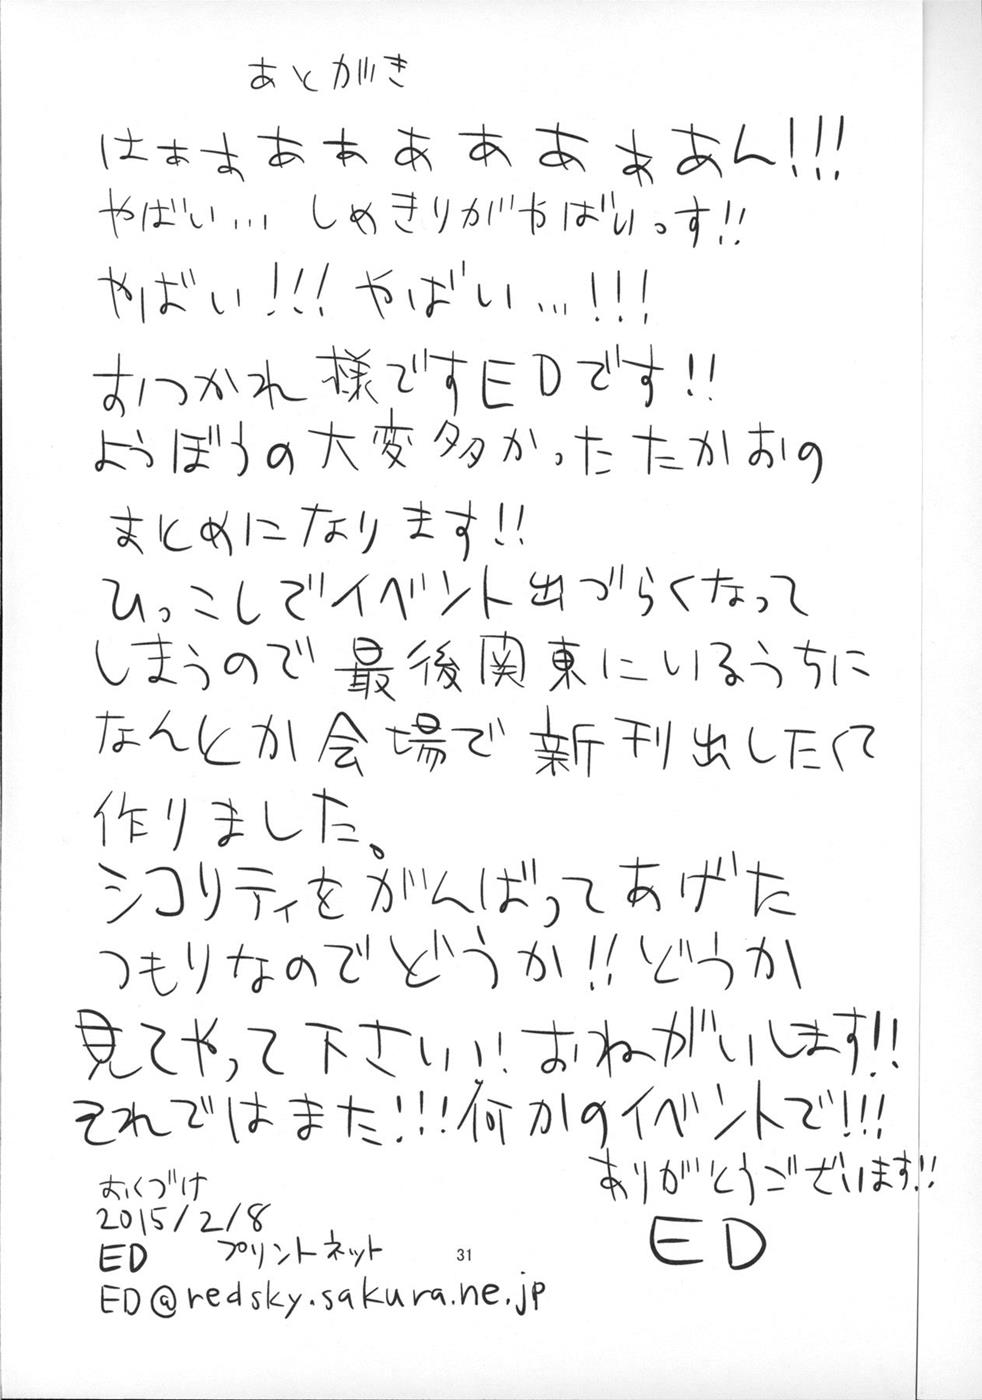 あとがき
はぁぁあぁあぁあぁあん!!!
やばい… しめきりがやばいっす!!
やばい!!! やばい…!!!
おつかれ様ですEDです!!
ようぼうの大変多かったたかおの
まとめになります!!
ひっこしでイベント出づらくなって
しまうので最後関東にいるうちに
なんとか会場で新刊出したくて
作りました。
シコリティをがんばってあげた
つもりなのでどうか!!どうか
見てやって下さいい!おねがいします!!
それではまた!!!何かのイベントで!!!
ありがとうございます!!
ED
おくづけ
2015/2/8
ED プリントネット
ED@redsky.sakura.ne.jp
31